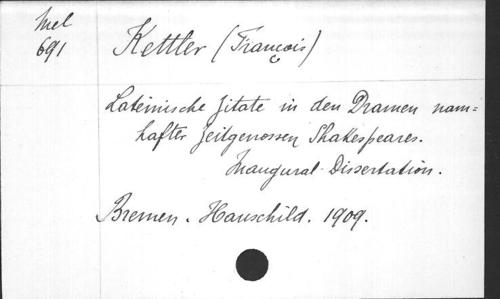 Mel
691
Kettler (François)
Lateinische Zitate in den Dramen nam=
hafter Zeitgenossen Shakespeares.
Inaugural-Dissertation.
Bremen. Hauschild. 1909.